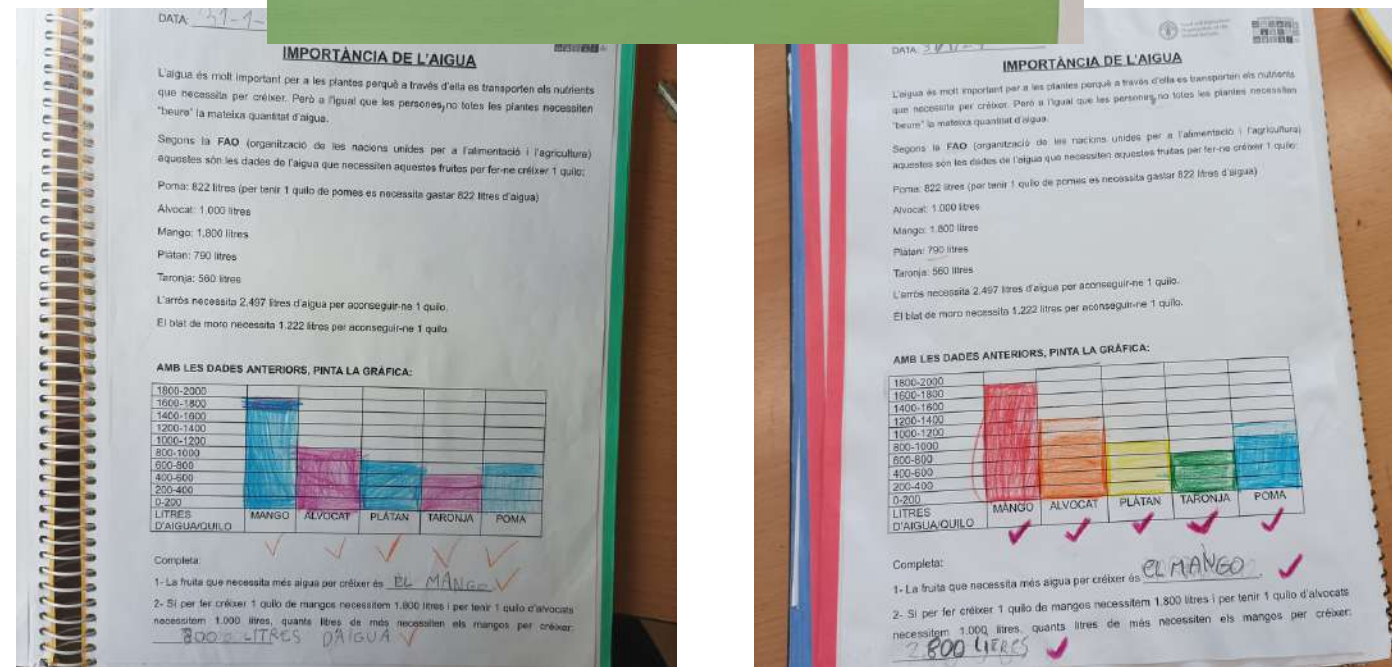 DATA: 31-1-
IMPORTÀNCIA DE L'AIGUA
L'aigua és molt important per a les plantes perquè a través d'ella es transporten els nutrients
que necessita per créixer. Però a l'igual que les persones, no totes les plantes necessiten
"beure" la mateixa quantitat d'aigua.
Segons la FAO (organització de les nacions unides per a l'alimentació i l'agricultura)
aquestes són les dades de l'aigua que necessiten aquestes fruites per fer-ne créixer 1 quilo:
Poma: 822 litres (per tenir 1 quilo de pomes es necessita gastar 822 litres d'aigua)
Alvocat: 1.000 litres
Mango: 1.800 litres
Plàtan: 790 litres
Taronja: 560 litres
L'arròs necessita 2.497 litres d'aigua per aconseguir-ne 1 quilo.
El blat de moro necessita 1.222 litres per aconseguir-ne 1 quilo.
AMB LES DADES ANTERIORS, PINTA LA GRÀFICA:
1800-2000
1600-1800
1400-1600
1200-1400
1000-1200
800-1000
600-800
400-600
200-400
0-200
LITRES MANGO ALVOCAT PLÀTAN TARONJA POMA
D'AIGUA/QUILO
Completa:
1- La fruita que necessita més aigua per créixer és EL MANGO
2- Si per fer créixer 1 quilo de mangos necessitem 1.800 litres i per tenir 1 quilo d'alvocats
necessitem 1.000 litres, quants litres de més necessiten els mangos per créixer:
800 LITRES D'AIGUA
DATA:
IMPORTÀNCIA DE L'AIGUA
L'aigua és molt important per a les plantes perquè a través d'ella es transporten els nutrients
que necessita per créixer. Però a l'igual que les persones, no totes les plantes necessiten
"beure" la mateixa quantitat d'aigua.
Segons la FAO (organització de les nacions unides per a l'alimentació i l'agricultura)
aquestes són les dades de l'aigua que necessiten aquestes fruites per fer-ne créixer 1 quilo:
Poma: 822 litres (per tenir 1 quilo de pomes es necessita gastar 822 litres d'aigua)
Alvocat: 1.000 litres
Mango: 1.800 litres
Plàtan: 790 litres
Taronja: 560 litres
L'arròs necessita 2.497 litres d'aigua per aconseguir-ne 1 quilo.
El blat de moro necessita 1.222 litres per aconseguir-ne 1 quilo.
AMB LES DADES ANTERIORS, PINTA LA GRÀFICA:
1800-2000
1600-1800
1400-1600
1200-1400
1000-1200
800-1000
600-800
400-600
200-400
0-200
LITRES MANGO ALVOCAT PLÀTAN TARONJA POMA
D'AIGUA/QUILO
Completa:
1- La fruita que necessita més aigua per créixer és EL MANGO
2- Si per fer créixer 1 quilo de mangos necessitem 1.800 litres i per tenir 1 quilo d'alvocats
necessitem 1.000 litres, quants litres de més necessiten els mangos per créixer:
800 LITRES